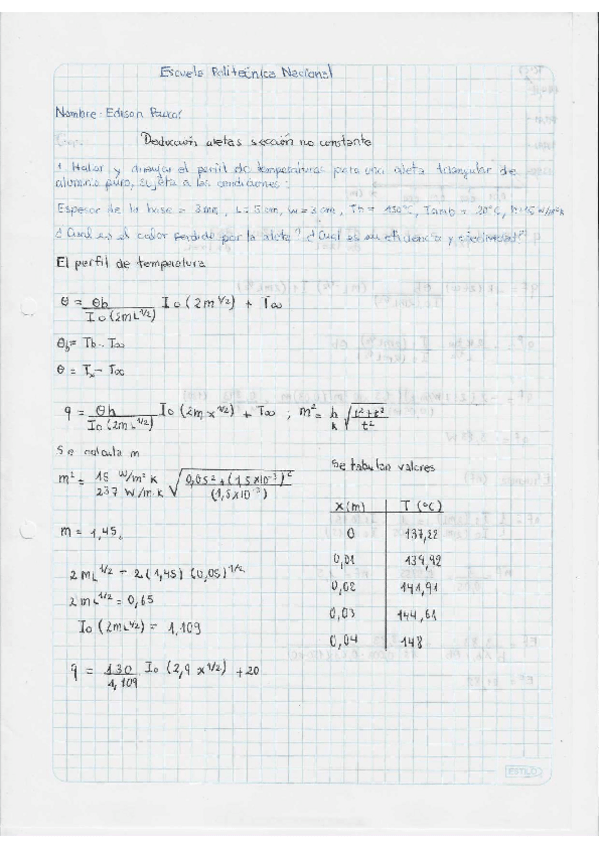 Escuela Politécnica Nacional
Nombre: Edison
Deducción aletas sección no constante
* Hallar y dibujar el perfil de temperaturas para una aleta triangular de
aluminio puro, sujeta a las condiciones:
Espesor de la base = 3mm, L = 5 cm, w = 3 cm, Tb = 150°C, Tamb = 20°C, h=15 W/m²K
¿Cuál es el calor perdido por la aleta? ¿Cuál es su eficiencia y efectividad?
El perfil de temperatura
θ = θb / I0 (2mL^1/2) I0 (2m^1/2) + T∞
θb = Tb - T∞
θ = Tx - T∞
q = θb / I0 (2mL^1/2) I0 (2m x^1/2) + T∞ ; m² = h/k √(L²+t²/t²)
Se calcula m
m² = 15 W/m² K / 237 W/m·K √(0,05² + (1,5x10^-3)² / (1,5x10^-3))
m = 1,45
2mL^1/2 = 2(1,45)(0,05)^1/2
2mL^1/2 = 0,65
I0 (2mL^1/2) = 1,109
q = 130/1,109 I0 (2,9 x^1/2) + 20
Se tabulan valores
x(m) T (°C)
0 137,22
0,01 139,92
0,02 141,91
0,03 144,61
0,04 148
ESTILO